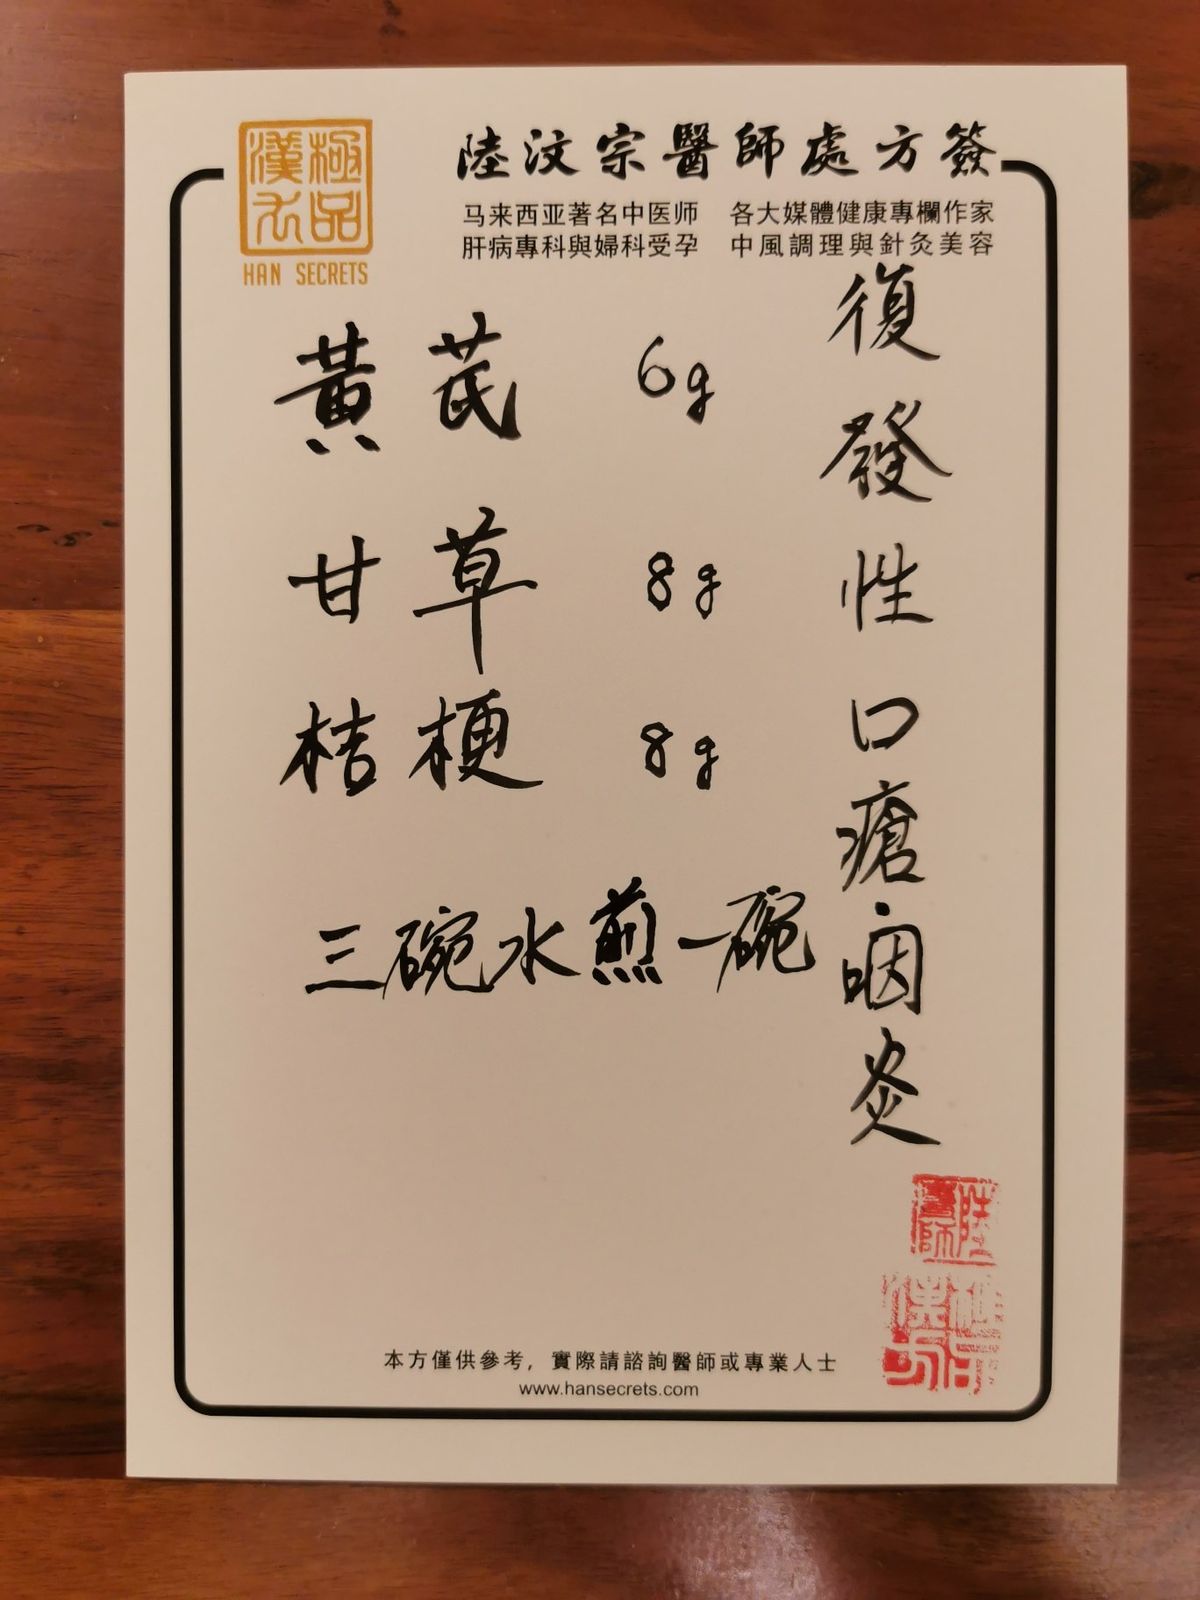 極品
漢方
HAN SECRETS
陸汶宗醫師處方簽
马来西亚著名中医师 各大媒體健康專欄作家
肝病專科與婦科受孕 中風調理與針灸美容
復發性口瘡咽炎
黃芪 6g
甘草 8g
桔梗 8g
三碗水煎一碗
陸
醫師
極品
漢方
本方僅供參考，實際請諮詢醫師或專業人士
www.hansecrets.com